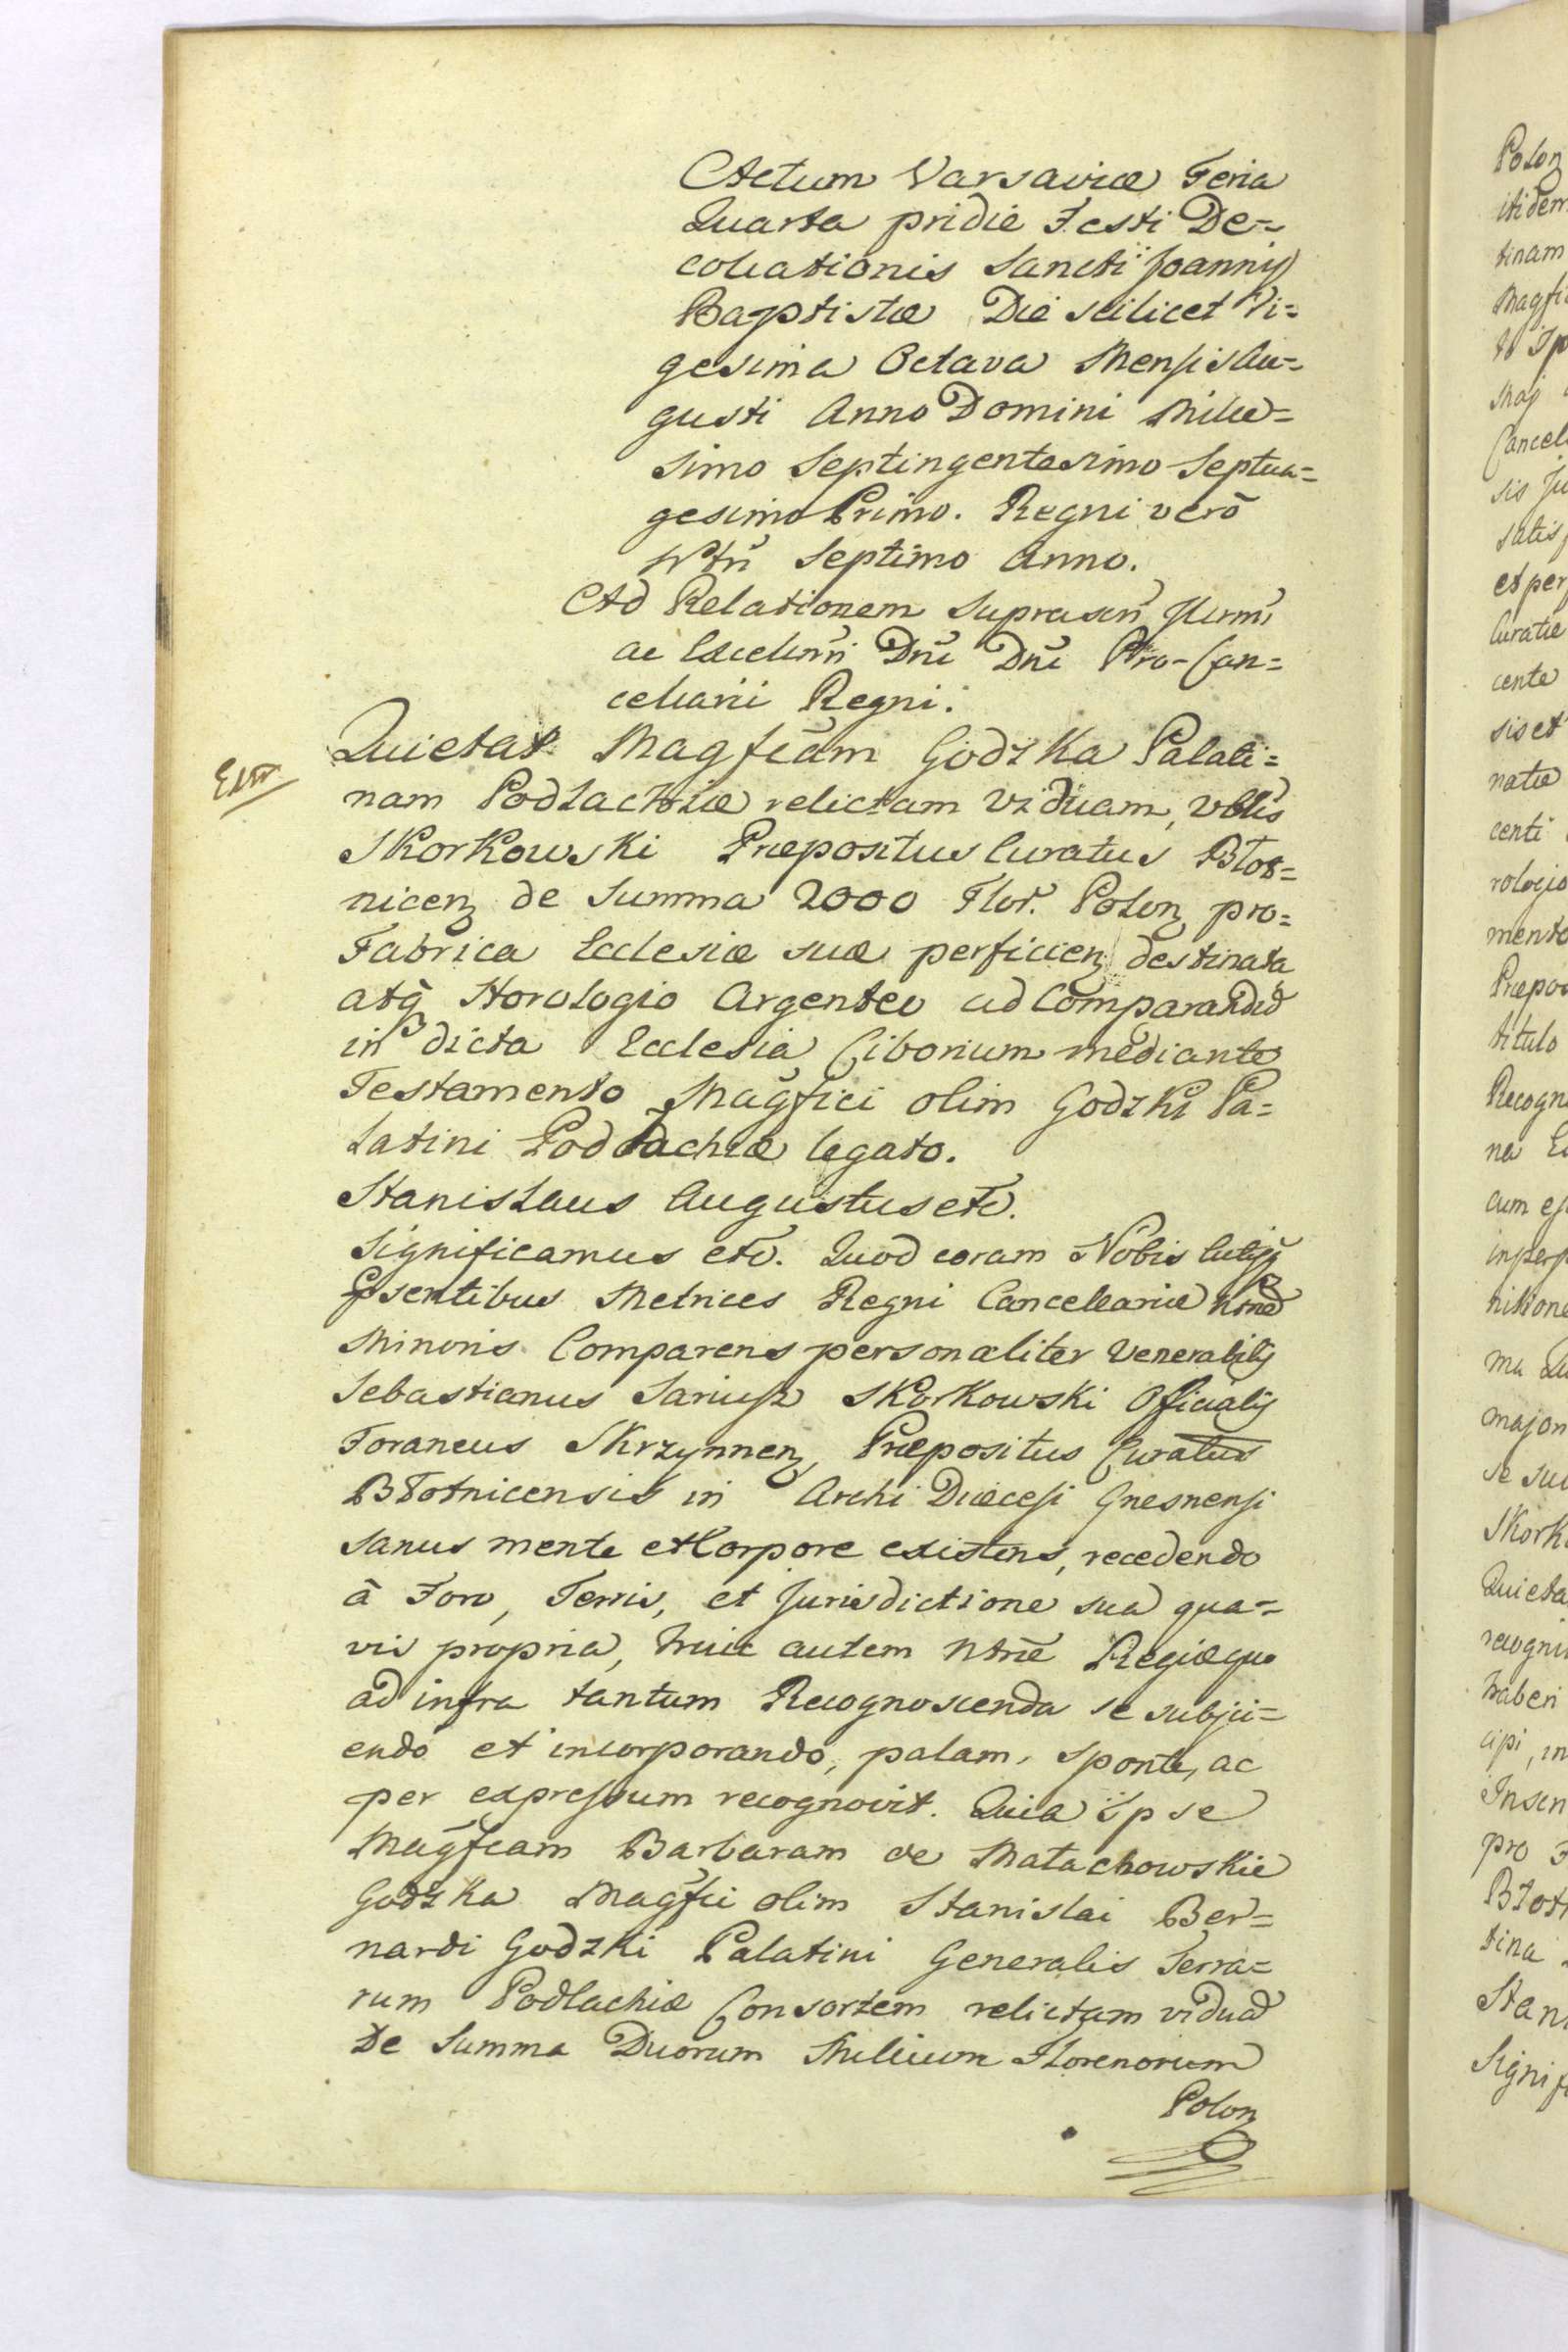 Actum Varsaviæ Feria
Quarta pridie Festi De=
collationis Sancti Joannis
Baptistæ Die scilicet Vi=
gesima Octava Mensis Au=
gusti Anno Domini Mille=
simo Septingentesimo Septua=
gesimo Primo. Regni verō
Ntri Septimo Anno.
Ad Relationem Suprascri Illrmi
ac Excellmi Dni Dni Pro-Can=
cellarii Regni.
Quietat Magfcam Godzka Palati=
nam Podlachiæ relictam Viduam, Vblis
Skorkowski Præpositus Curatus Błot=
nicen de Summa 2000 Flor. Polon pro=
Fabrica Ecclesiæ suæ perficien destinata
atq Horologio Argenteo ad Comparandū
in dicta Ecclesia Ciborium mediante
Testamento Magfici olim Godzki Pa=
latini Podlachiæ legato.
Stanislaus Augustus etc.
Significamus etc. Quod coram Nobis
Psentibus Metrices Regni Cancellariæ
Minoris Comparens personaliter Venerabilis
Sebastianus Sariusz Skorkowski Officialis
Foraneus Skrzynnen, Præpositus Curatus
Błotnicensis in Archi Diæcesi Gnesnensi
sanus mente et Corpore existens, recedendo
à Foro, Terris, et Jurisdictione sua qua=
vis propria, huic autem Ntræ Regiæque
ad infra tantum Recognoscenda se subjici=
endo et incorporando, palam, sponte, ac
per expressum recognovit. Quia ipse
Magfcam Barbaram de Małachowskie
Godzka Magfci olim Stanislai Ber=
nardi Godzki Palatini Generalis Terra=
rum Podlachiæ Consortem relictam viduā
De Summa Duorum Millium Florenorum
Polon